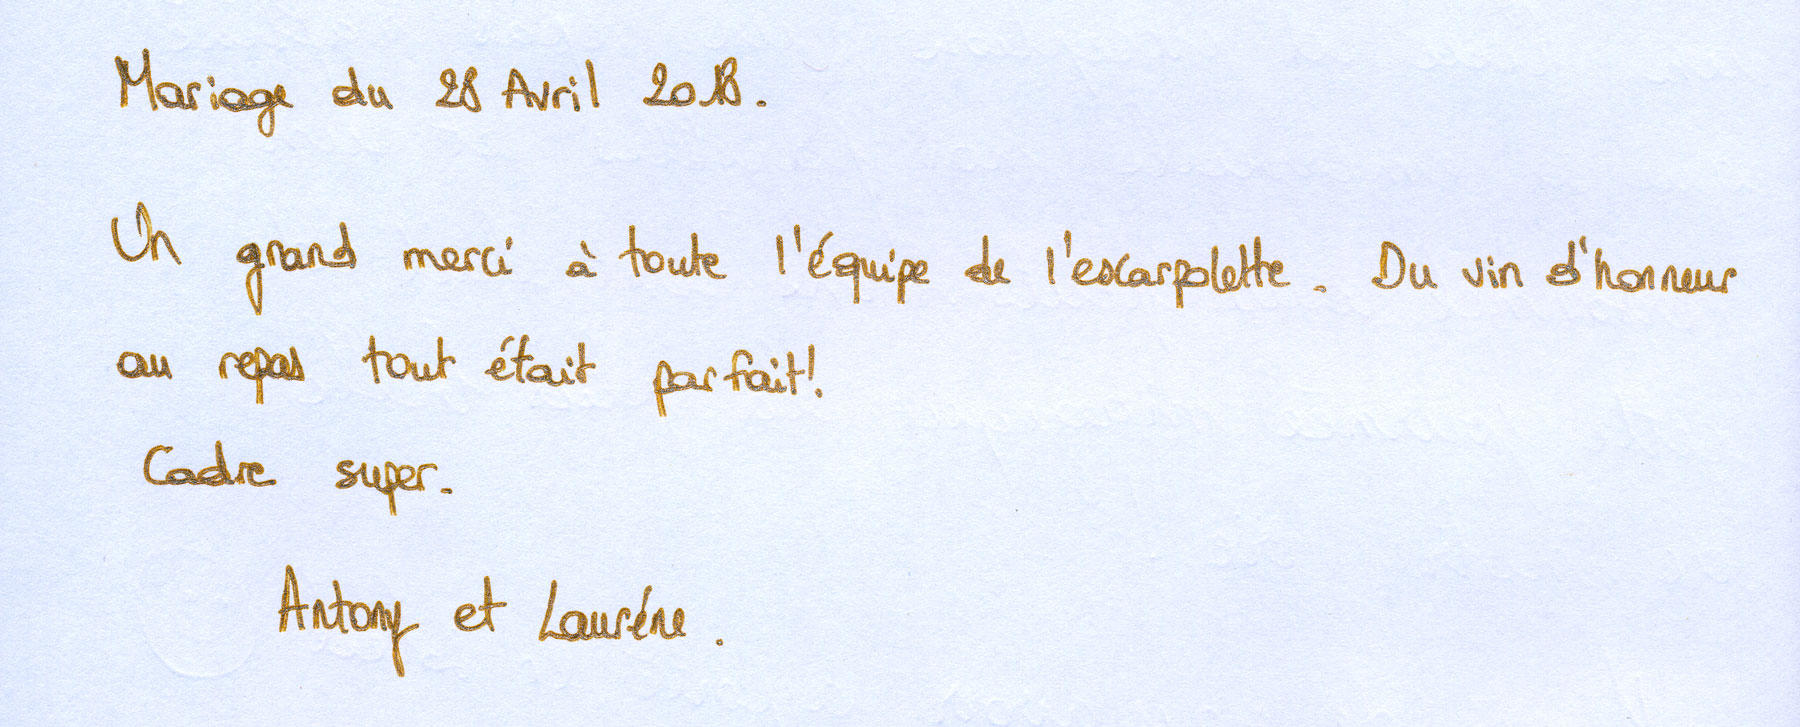 Mariage du 28 Avril 2018.
Un grand merci à toute l'équipe de l'escarpolette. Du vin d'honneur
au repas tout était parfait!
Cadre super.
Antony et Laurène.